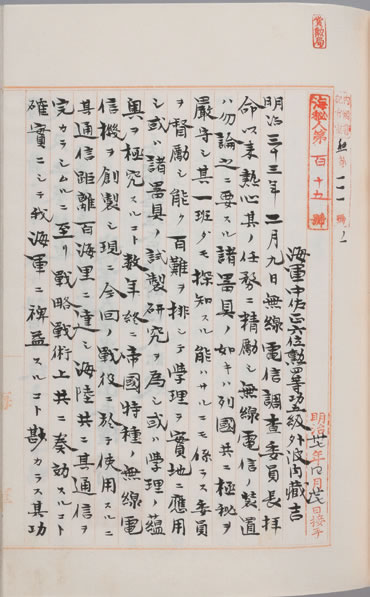 賞勲局
海秘人第百十九號
海軍中佐正六位勲四等功五級外波内藏吉
明治三十三年二月九日無線電信調査委員長拝
命以来熱心其ノ任務ニ精勵シ無線電信ノ装置
ハ勿論之ニ要スル諸器具ノ如キハ列國共ニ極秘ヲ
嚴守シ其一班ダモ探知スル能ハサルニモ係ラス委員
ヲ督勵シ能ク百難ヲ排シテ學理ヲ實地ニ應用
シ或ハ諸器具ノ試製研究ヲ為シ或ハ學理ノ蘊
奥ヲ極究スルコト数年終ニ帝國特種ノ無線電
信機ヲ創製シ現ニ今回ノ戦役ニ於テ使用スルニ
其通信距離百海里ニ達シ海陸共ニ其通信ヲ
完カラシムルニ至リ戦略戦術上共ニ奏効スルコト
確實ニシテ我海軍ニ裨益スルコト尠カラス其功